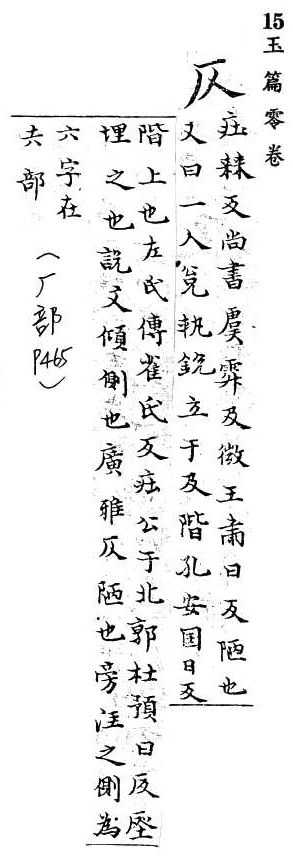 15 玉篇零卷
仄
㽵棘反尚書虞舜仄微王肅曰仄陋也
又曰一人冕執銳立于仄階孔安国曰仄
階上也左氏傳崔氏仄㽵公于北郭杜預曰仄
埋之也說文傾側也廣雅仄陋也旁汪之側為
六字在
部
(厂部 P465)